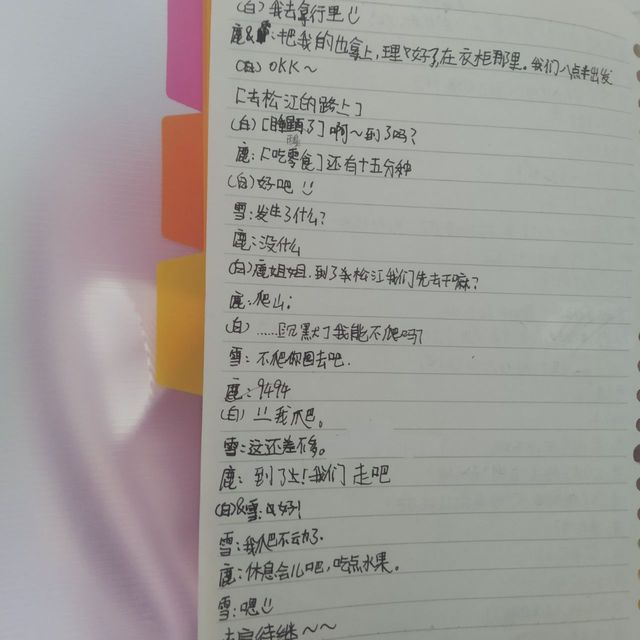 (白)我去拿行里
鹿&雪:把我的也拿上,理好了在衣柜那里。我们八点半出发
(白)OKK~
[去松江的路上]
(白)[睡醒了]啊~到了吗?
鹿:[吃零食]还有十五分种
(白)好吧
雪:发生了什么?
鹿:没什么
(白)鹿姐姐,到了松江我们先去干嘛?
鹿:爬山;
(白)……沉默了我能不爬吗?
雪:不爬你回去吧.
鹿:9494
(白)我爬。
雪:这还差不多。
鹿:到了!我们走吧
(白)&雪:好!
雪:我爬不动了.
鹿:休息会儿吧,吃点水果。
雪:嗯
未完待继~~